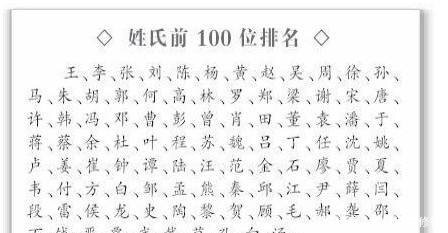 ◇ 姓氏前100位排名 ◇
王、李、张、刘、陈、杨、黄、赵、吴、周、徐、孙、
马、朱、胡、郭、何、高、林、罗、郑、梁、谢、宋、唐、
许、韩、冯、邓、曹、彭、曾、肖、田、董、袁、潘、于、
蒋、蔡、余、杜、叶、程、苏、魏、吕、丁、任、沈、姚、
卢、姜、崔、钟、谭、陆、汪、范、金、石、廖、贾、夏、
韦、付、方、白、邹、孟、熊、秦、邱、江、尹、薛、闫、
段、雷、侯、龙、史、陶、黎、贺、顾、毛、郝、龚、邵、